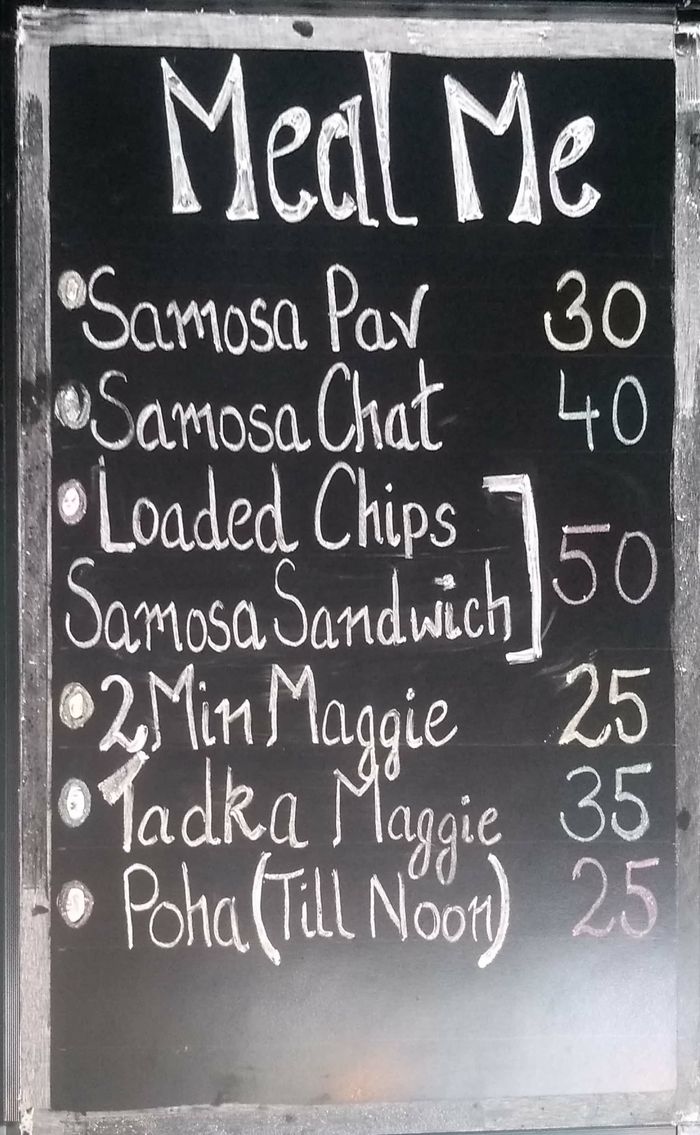 Meal Me
Samosa Pav 30
Samosa Chat 40
Loaded Chips
Samosa Sandwich ] 50
2 Min Maggie 25
Tadka Maggie 35
Poha (Till Noon) 25